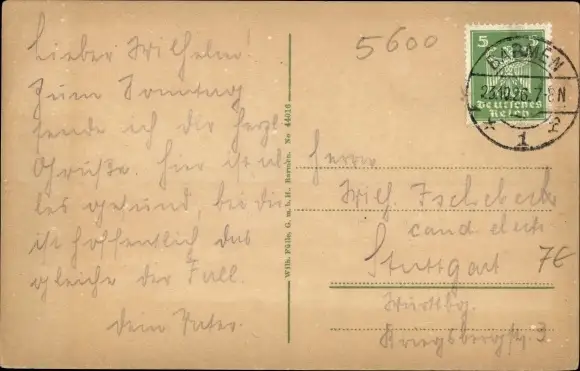 Lieber Wilhelm!
Zum Sonntag
sende ich dir herzl.
Grüße. Hier ist al
les gesund, bei dir
ist hoffentlich das
gleiche der Fall.
Dein Vater.
Wilh. Fülle, G. m. b. H., Barmen. No 44016
5600
5 5
Deutsches
Reich
BARMEN
23.10.26.7-8N
* 1 *
Herrn
Wilh.
cand. elect.
Stuttgart
7€
Württbg.
Kriegsbergstr. 3